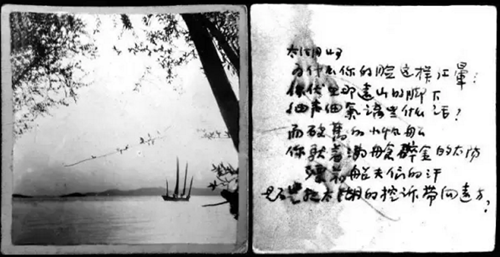 太湖
为什么你的脸这样红晕?
你伏在那远山的脚下
细声细气语些什么话?
而破旧的小帆船
你驮着满舱碎金的太阳
着船夫们的汗
是否把太湖的控诉带向远方?